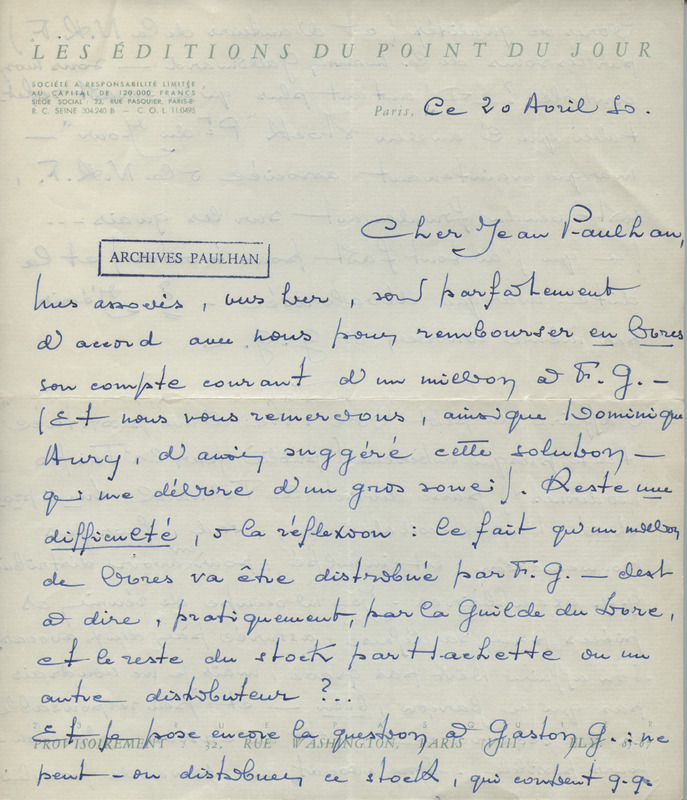 LES ÉDITIONS DU POINT DU JOUR
SOCIÉTÉ A RESPONSABILITÉ LIMITÉE
AU CAPITAL DE 120.000 FRANCS
SIÈGE SOCIAL : 23, RUE PASQUIER, PARIS-8e
R. C. SEINE 304.240 B — C. O. L. 11.0495
Paris, Ce 20 Avril 50.
Cher Jean Paulhan,
ARCHIVES PAULHAN
mes associés, vus hier, sont parfaitement
d'accord avec nous pour rembourser en livres
son compte courant d'un million à F. G. —
(Et nous vous remercions, ainsi que Dominique
Aury, d'avoir suggéré cette solution —
qui me délivre d'un gros souci). Reste une
difficulté, à la réflexion : le fait qu'un million
de livres va être distribué par F. G. — c'est
à dire, pratiquement, par la Guilde du Livre,
et le reste du stock par Hachette ou un
autre distributeur ?..
Et je pose encore la question à Gaston G. : ne
PROVISOIREMENT : 32, RUE WASHINGTON, PARIS VIII
peut-on distribuer ce stock, qui contient q.q.